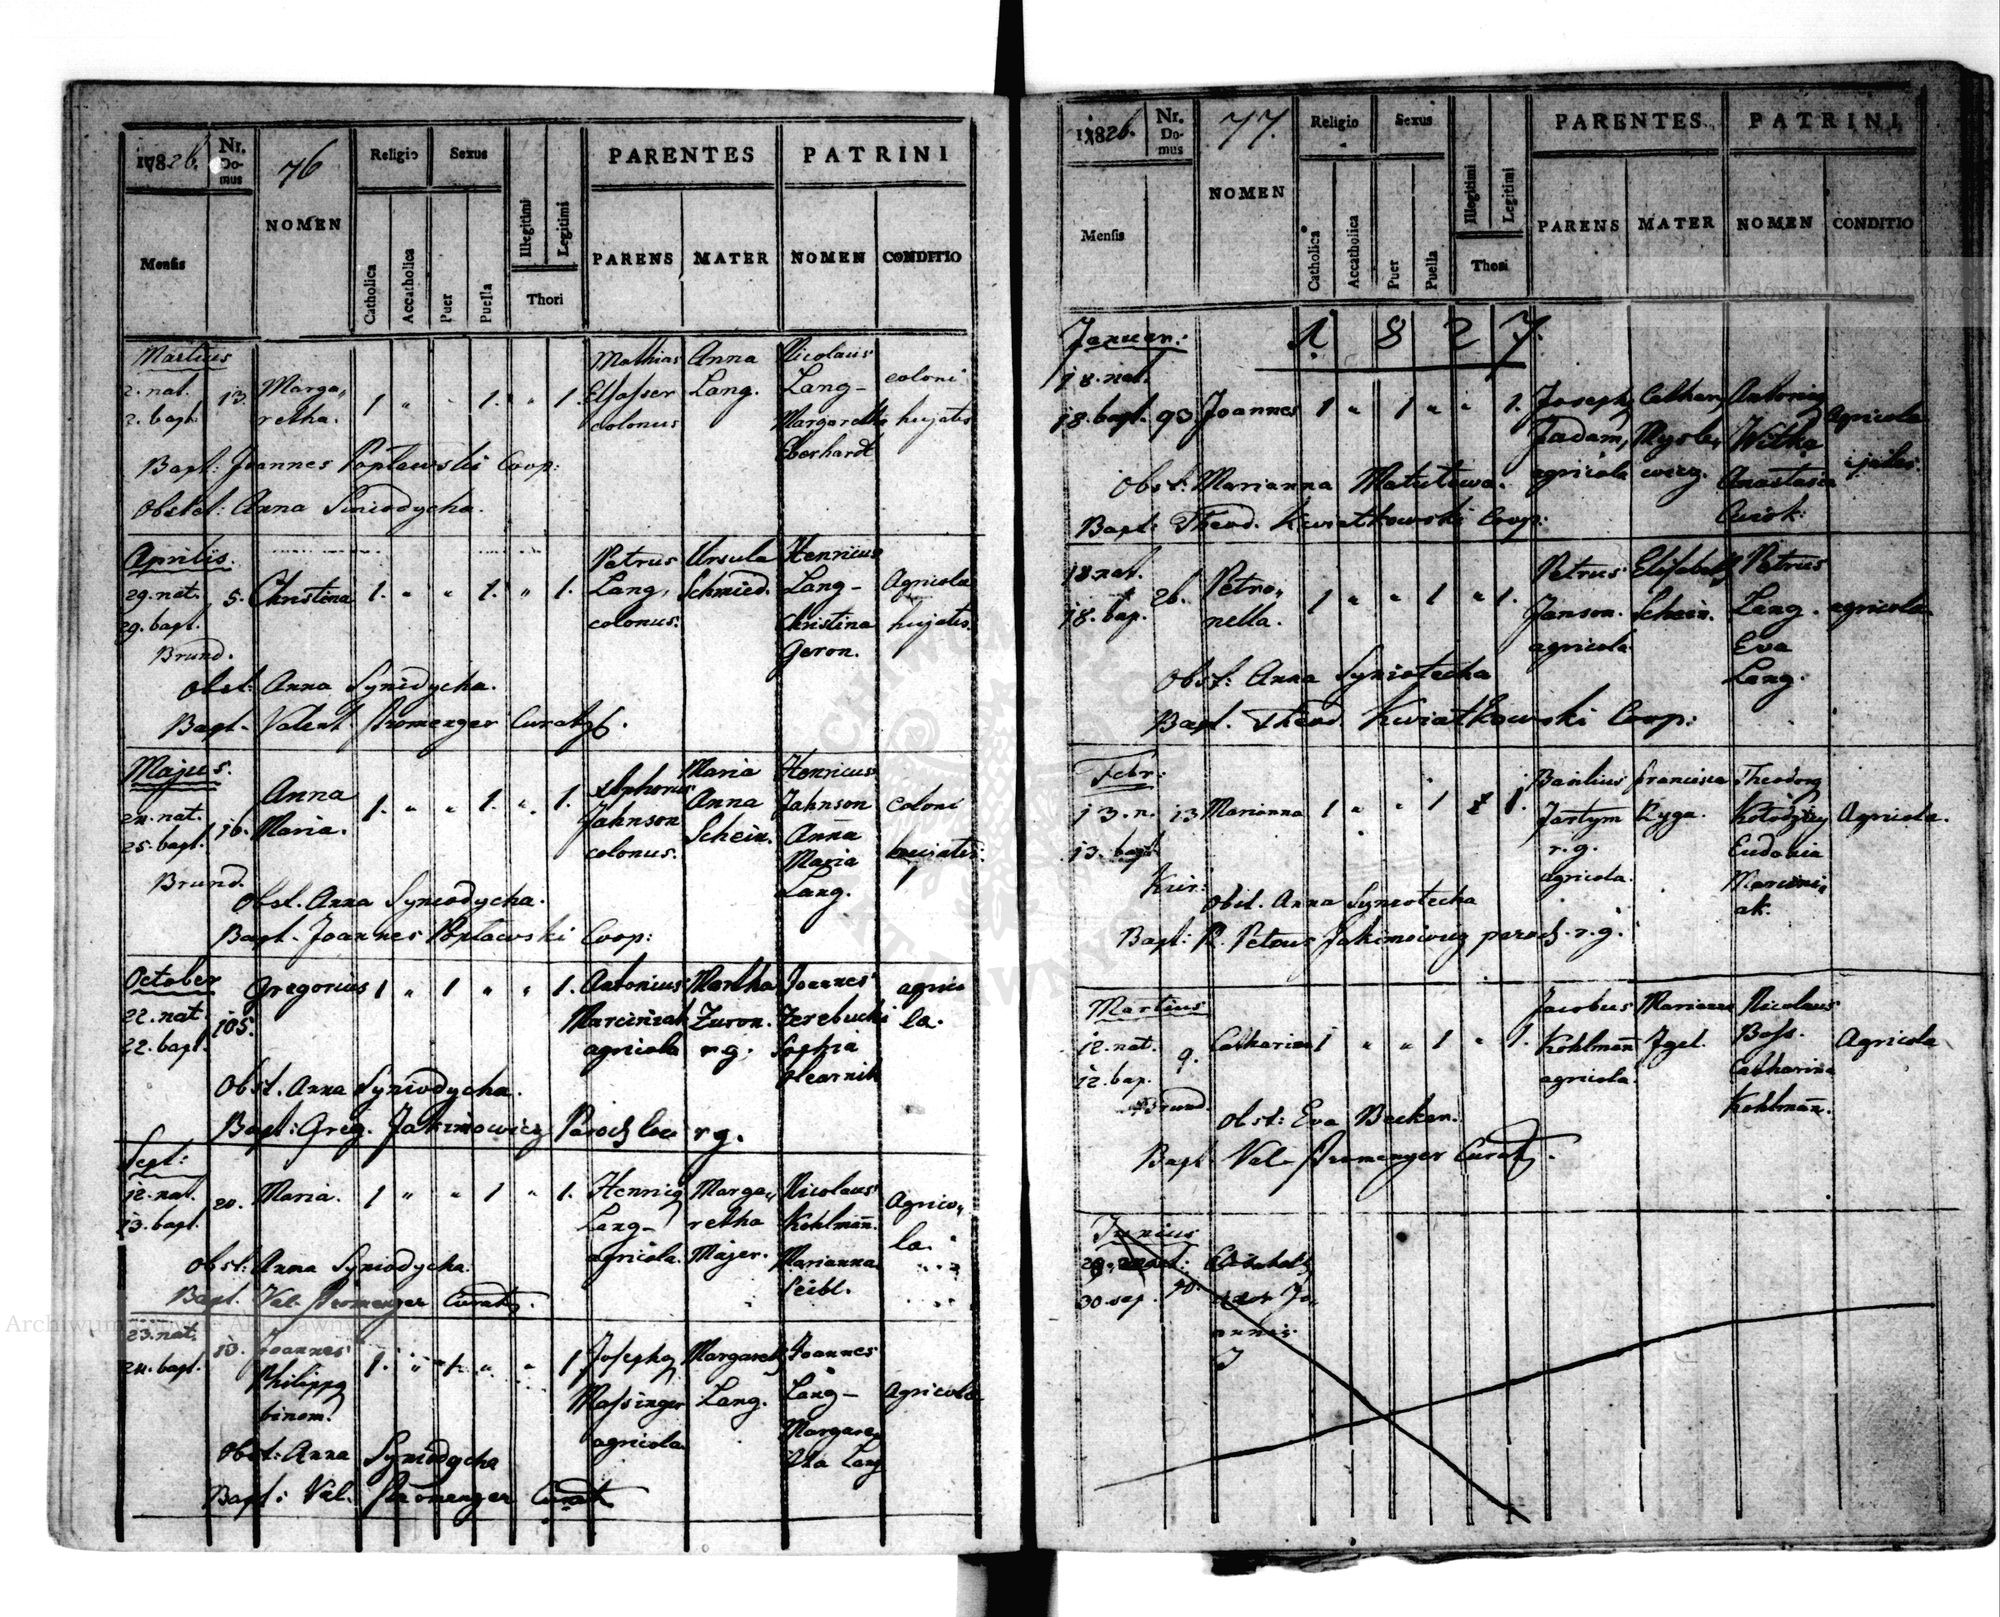 1782b.
Nr. Do- mus
76
Religio
Sexus
PARENTES
PATRINI
Mensis
NOMEN
Catholica
Accatholica
Puer
Puella
Illegitimi
Legitimi
Thori
PARENS
MATER
NOMEN
CONDITIO
Martius
Mathias Anna Nicolaus
2. nat. 13. Marga, 1 " " 1. " 1. Elsasser Lang. Lang coloni
2. bapt. retha. colonus Margaretha hujates
Bapt: Joannes Poplawski Coop: Eberhardt
Obstet: Anna Siniodycha.
Aprilis. Petrus Ursula Henricus
29. nat. 5. Christina 1. " " 1. " 1. Lang, Schmied. Lang Agricola
29. bapt. colonus. Christina hujates.
Brund. Geron.
Obst: Anna Syniodycha.
Bapt. Valent. Stromenger Curatg.
Majus. Maria Henricus
Anna 1. " " 1. " 1. Anna Jahnson coloni
24. nat. 16. Maria. Jahnson Schein. Anna
25. bapt. colonus. Maria
Brund. Lang.
Obst. Anna Syniodycha.
Bapt. Joannes Poplawski Coop:
October Gregorius 1 " 1 " " 1. Antonius Martha Joannes agrico
22. nat. 105. Marciniak Zuron. Terebucki la.
22. bapt. agricola r.g. Sophia
Olearnik
Obst. Anna Syniodycha.
Bapt: Greg. Jakimowicz Paroch loci r.g.
Sept:
12. nat. 20. Maria. 1 " " 1 " 1. Henricg Marga, Nicolaus Agrico,
13. bapt. Lang retha Kohlmañ. la.
agricola. Majer. Marianna
Obst: Anna Syniodycha. Seibl.
Bapt. Val. Stromenger Curatg.
23. nat. 13. Joannes 1. " 1. " " 1. Josephg Margareth Joannes
24. bapt. Philippg Massinger Lang. Lang Agricola
binom. agricola. Margare,
tha Lang
Obst: Anna Syniodycha
Bapt: Val. Stromenger Curat
1782b.
Nr. Do- mus
77.
Religio
Sexus
PARENTES
PATRINI
Mensis
NOMEN
Catholica
Accatholica
Puer
Puella
Illegitimi
Legitimi
Thori
PARENS
MATER
NOMEN
CONDITIO
Januar: 1 8 2 7.
18. nat.
18. bapt. 93 Joannes 1 " 1 " " 1. Joseph Cathar, Antonig Agricola
Fadam, Mysle, Witka
agricola wicz. Anastasia
Obst: Marianna Matutewa.
Bapt: Theod. Kwiatkowski Coop:
18. nat. 26. Petro, 1 " " 1 " 1. Petrus Elisabeth Petrus
18. bap. nella. Janson. Schein. Lang. agricola
agricola Eva
Obst: Anna Syniotecha Lang.
Bapt. Theod. Kwiatkowski Coop:
Febr: Basilius Francisca Theodorg
13. n. 13 Marianna 1 " " 1 1. Jartym Ryga. Kolodzy Agricola.
13. bapt r.g. Eudokia
agricola. Marcini,
ak.
Obst. Anna Syniotecha
Bapt: R. Petrus Jakimowicz paroch. r.g.
Martius Jacobus Marianna Nicolaus
12. nat. 9. Catharina 1 " " 1 " 1. Kohlmañ Igel. Boss. Agricola
12. bap. agricola. Catharina
Brund. Kohlmañ.
Obst: Eva Becker.
Bapt. Val. Stromenger Curatg.
Junius
29. nat: 40. Elisabeth
30. bap.